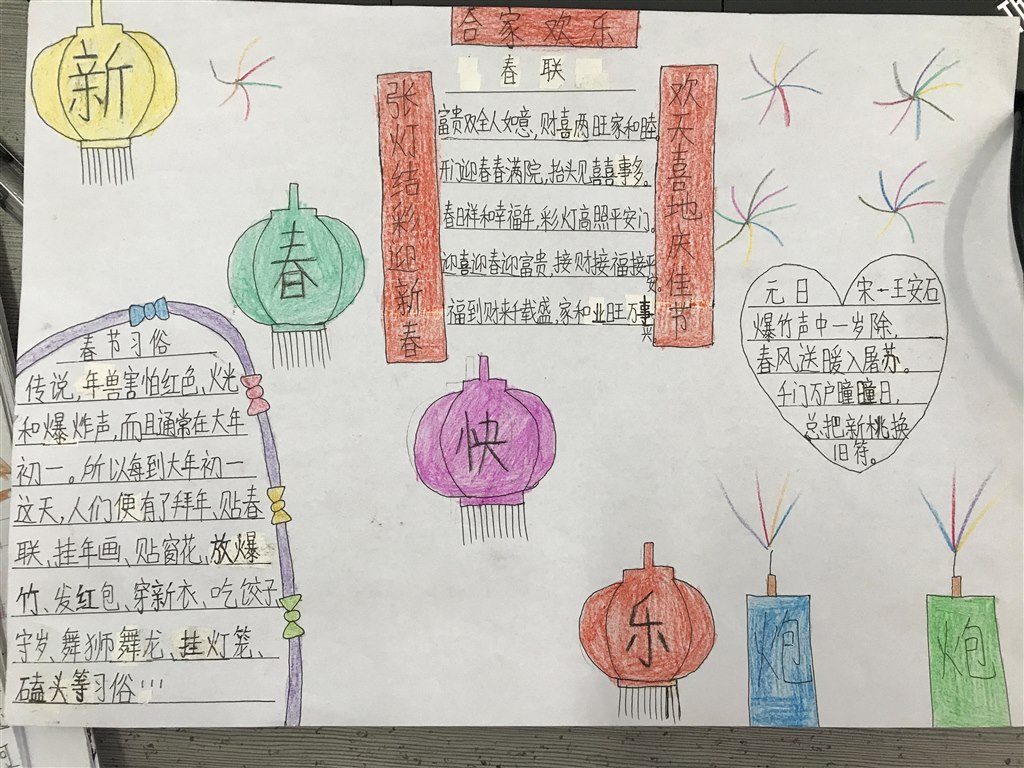 新
春
快
乐
合家欢乐
张灯结彩迎新春
欢天喜地庆佳节
春联
富贵双全人如意,财喜两旺家和睦。
开门迎春春满院,抬头见喜喜事多。
春日祥和幸福年,彩灯高照平安门。
迎喜迎春迎富贵,接财接福接平
安。
福到财来千载盛,家和业旺万事
兴
元日 宋-王安石
爆竹声中一岁除,
春风送暖入屠苏。
千门万户瞳瞳日,
总把新桃换
旧符。
春节习俗
传说,年兽害怕红色、火光
和爆炸声,而且通常在大年
初一。所以每到大年初一
这天,人们便有了拜年、贴春
联、挂年画、贴窗花、放爆
竹、发红包、穿新衣、吃饺子、
守岁、舞狮舞龙、挂灯笼、
磕头等习俗…
炮
炮